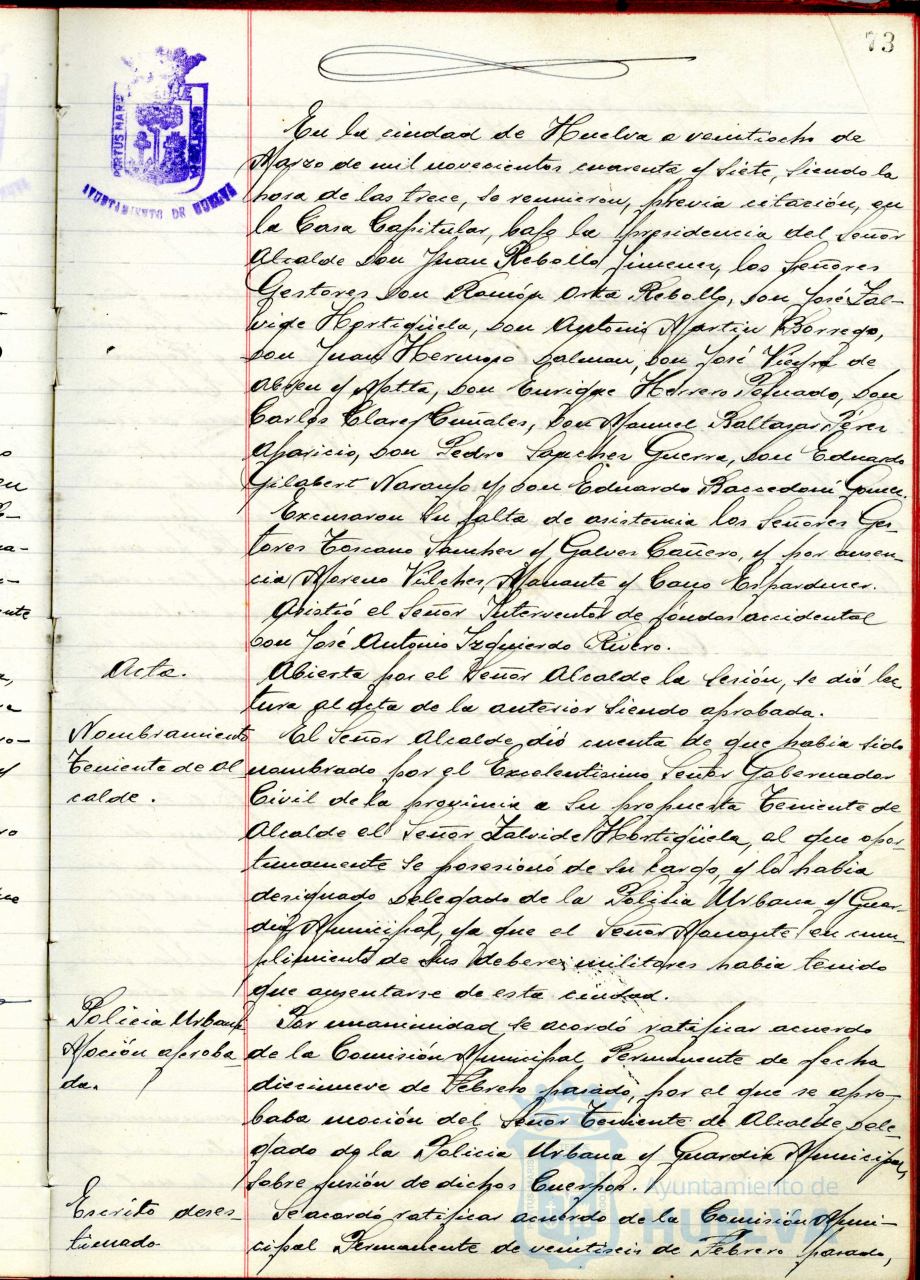 73
PORTUS MARIS
AYUNTAMIENTO DE HUELVA
En la ciudad de Huelva a veintiocho de
Marzo de mil novecientos cuarenta y siete, siendo la
hora de las trece, se reunieron, previa citación, en
la Casa Capitular, bajo la presidencia del Señor
Alcalde Don Juan Rebollo Jimenez, los Señores
Gestores Don Ramón Orta Rebollo, Don José Zal-
vide Hortigüela, Don Antonio Martin Borrego,
Don Juan Hermoso Dalman, Don José Vieyra de
Abreu y Motta, Don Enrique Herrero Peinado, Don
Carlos Clarez Cuñales, Don Manuel Baltasar Pérez
Aparicio, Don Pedro Sanchez Guerra, Don Eduardo
Gilabert Naranjo y Don Eduardo Baccedoni Gomez.
Excusaron su falta de asistencia los Señores Ges-
tores Toscano Sanchez y Galvez Cañero, y por ausen-
cia Moreno Vilches, Manante y Cano Esparducer.
Asistió el Señor Interventor de fondos accidental
Don José Antonio Izquierdo Rivero.
Acta.
Abierta por el Señor Alcalde la sesión, se dió lec
tura al acta de la anterior siendo aprobada.
Nombramiento
Teniente de Al
calde.
El Señor Alcalde dió cuenta de que habia sido
nombrado por el Excelentisimo Señor Gobernador
Civil de la provincia a su propuesta Teniente de
Alcalde el Señor Zalvide Hortigüela, al que opor-
tunamente se posesionó de su cargo, y lo había
designado Delegado de la Policia Urbana y Guar-
dia Municipal, ya que el Señor Manante en cum-
plimiento de sus deberes militares habia tenido
que ausentarse de esta ciudad.
Policia Urbana
Moción aproba
da.
Por unanimidad se acordó ratificar acuerdo
de la Comisión Municipal Permanente de fecha
diecinueve de Febrero pasado, por el que se apro-
baba moción del Señor Teniente de Alcalde Dele-
gado de la Policia Urbana y Guardia Municipal,
sobre fusión de dichos Cuerpos.
Escrito deses-
timado
Se acordó ratificar acuerdo de la Comisión Muni-
cipal Permanente de veintiseis de Febrero pasado,
Ayuntamiento de
HUELVA